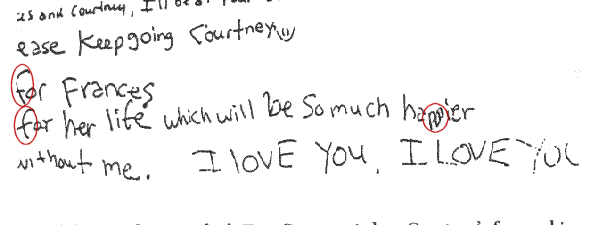 us and Courtney, I'll be at your
ease Keep going Courtney
for Frances
for her life which will be so much happier
without me. I LOVE YOU, I LOVE YOU